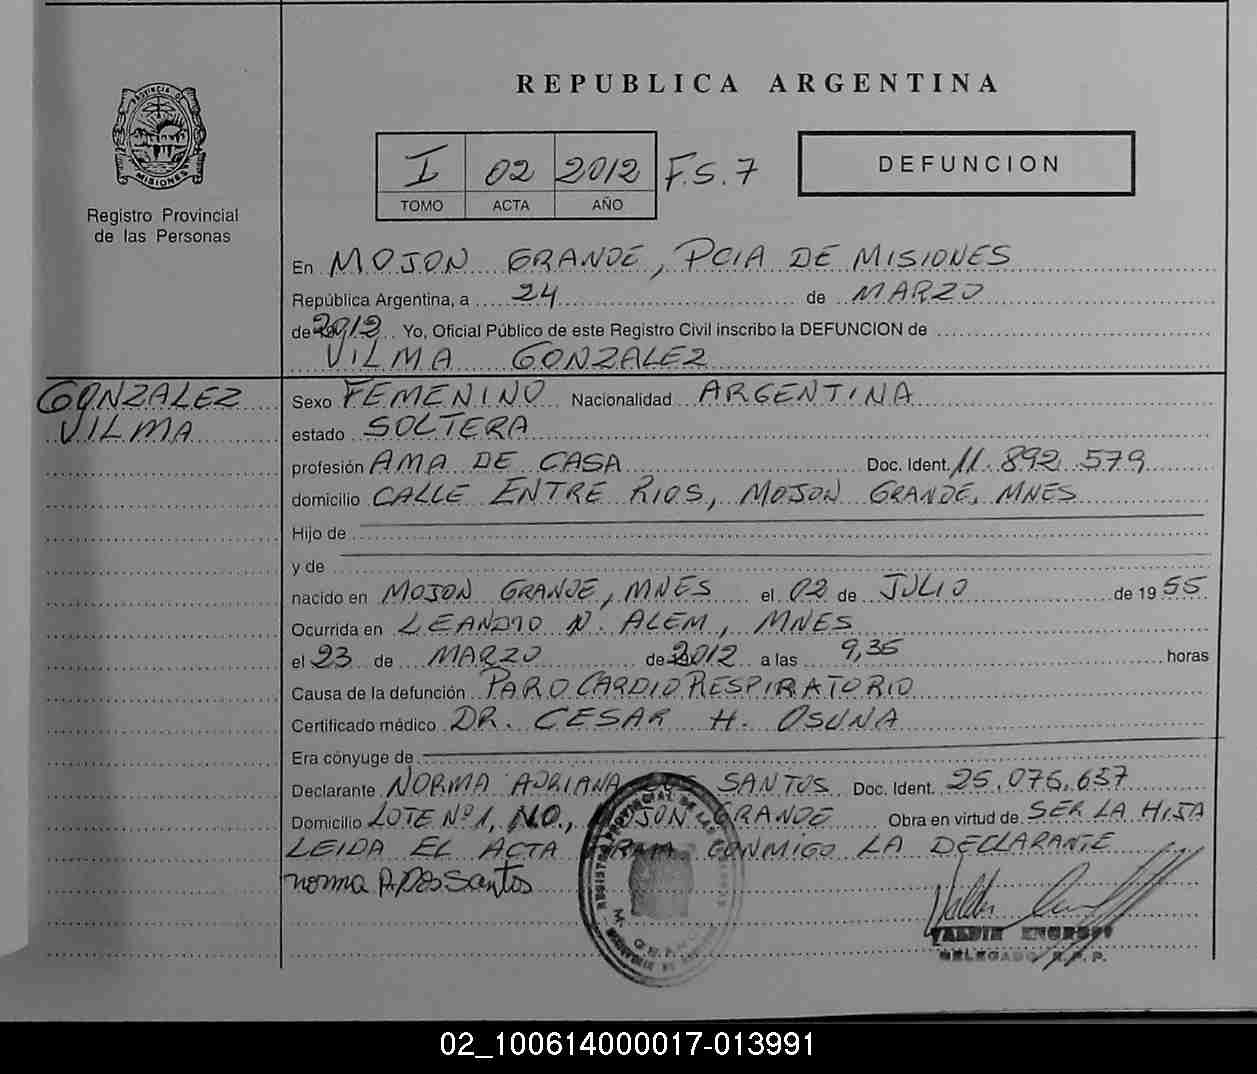 REPUBLICA ARGENTINA
PROVINCIA DE
MISIONES
Registro Provincial
de las Personas
I 02 2012 F.S. 7
TOMO ACTA AÑO
DEFUNCION
En MOJON GRANDE, PCIA DE MISIONES
República Argentina, a 24 de MARZO
de 2012 Yo, Oficial Público de este Registro Civil inscribo la DEFUNCION de
VILMA GONZALEZ
GONZALEZ
VILMA
Sexo FEMENINO Nacionalidad ARGENTINA
estado SOLTERA
profesión AMA DE CASA Doc. Ident. 11.892.579
domicilio CALLE ENTRE RIOS, MOJON GRANDE, MNES
Hijo de
y de
nacido en MOJON GRANDE, MNES el 02 de JULIO de 1955
Ocurrida en LEANDRO N. ALEM, MNES
el 23 de MARZO de 2012 a las 9,35 horas
Causa de la defunción PARO CARDIO RESPIRATORIO
Certificado médico DR. CESAR H. OSUNA
Era cónyuge de
Declarante NORMA ADRIANA DOS SANTOS Doc. Ident. 25.076.637
Domicilio LOTE Nº 1, N.O., MOJON GRANDE Obra en virtud de SER LA HIJA
LEIDA EL ACTA FIRMA CONMIGO LA DECLARANTE
norma A. Dos Santos
REGISTRO PROVINCIAL DE LAS
M. GRANDE
DELEGADO R.P.P.
02_100614000017-013991